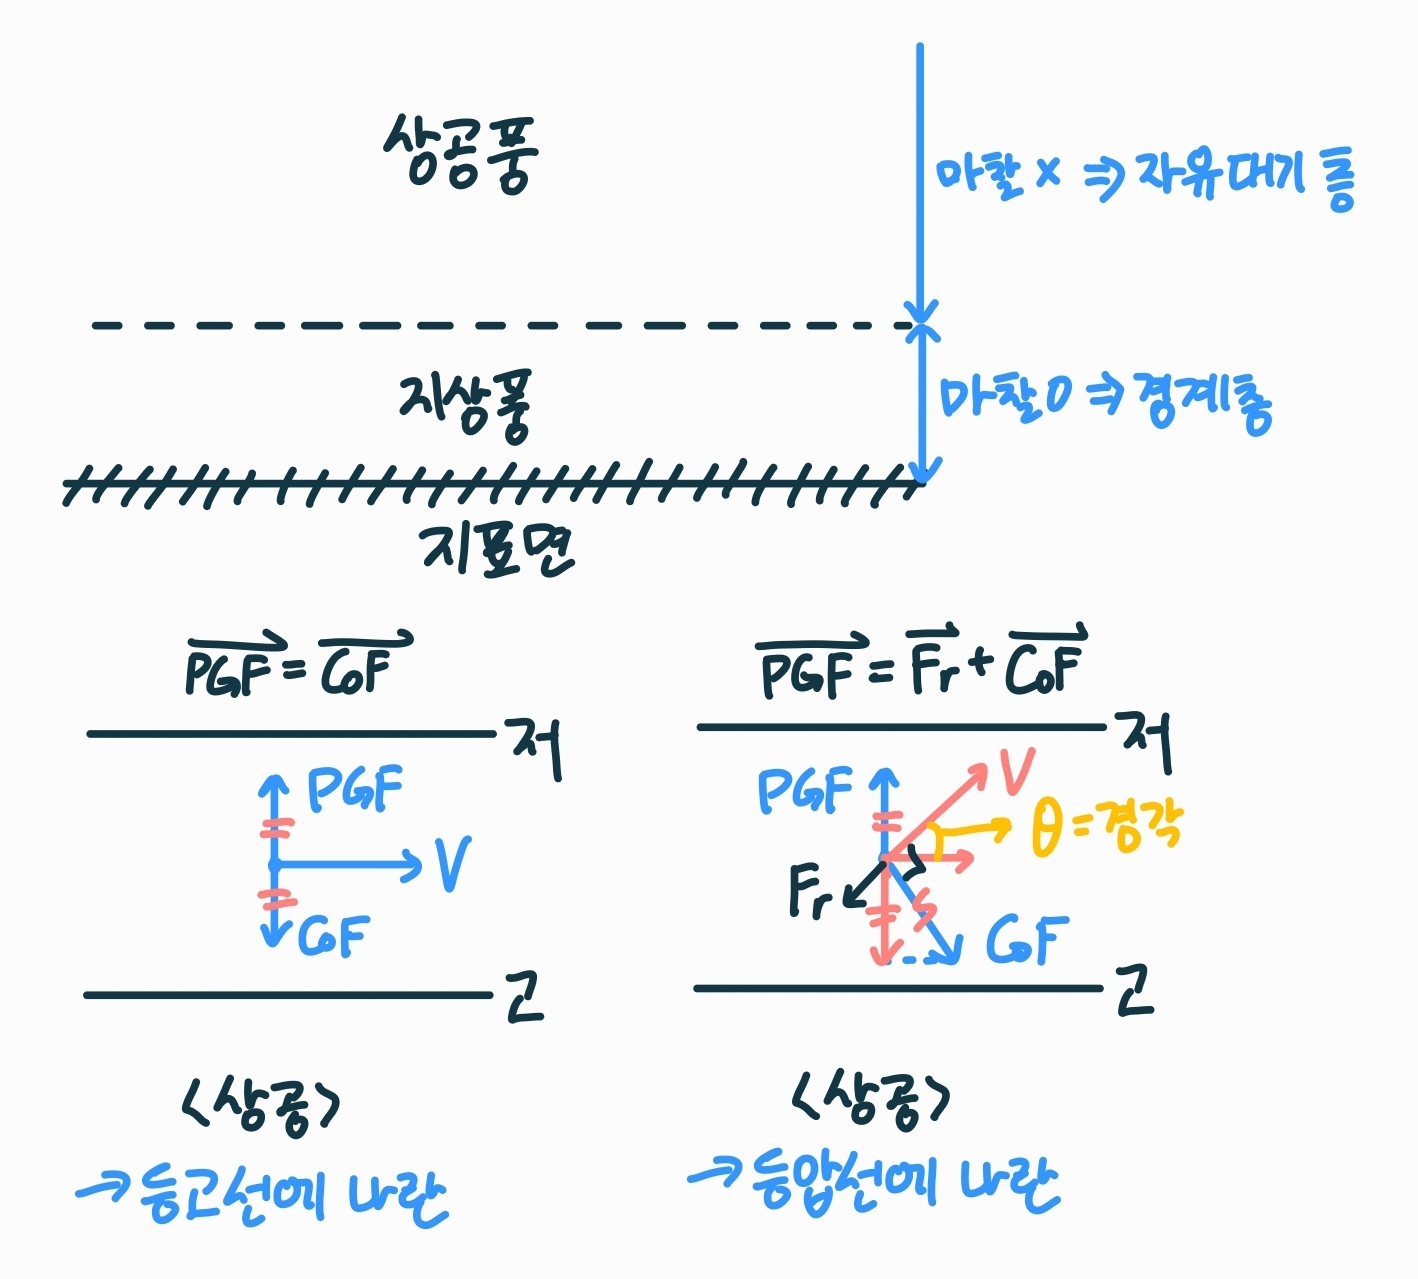 상공풍
마찰 x ⇒ 자유대기 층
지상풍
마찰 O ⇒ 경계층
지표면
PGF = CoF
저
PGF
V
CoF
고
<상공>
→ 등고선에 나란
PGF = Fr + CoF
저
PGF
V
θ = 경각
Fr
CoF
고
<상공>
→ 등압선에 나란